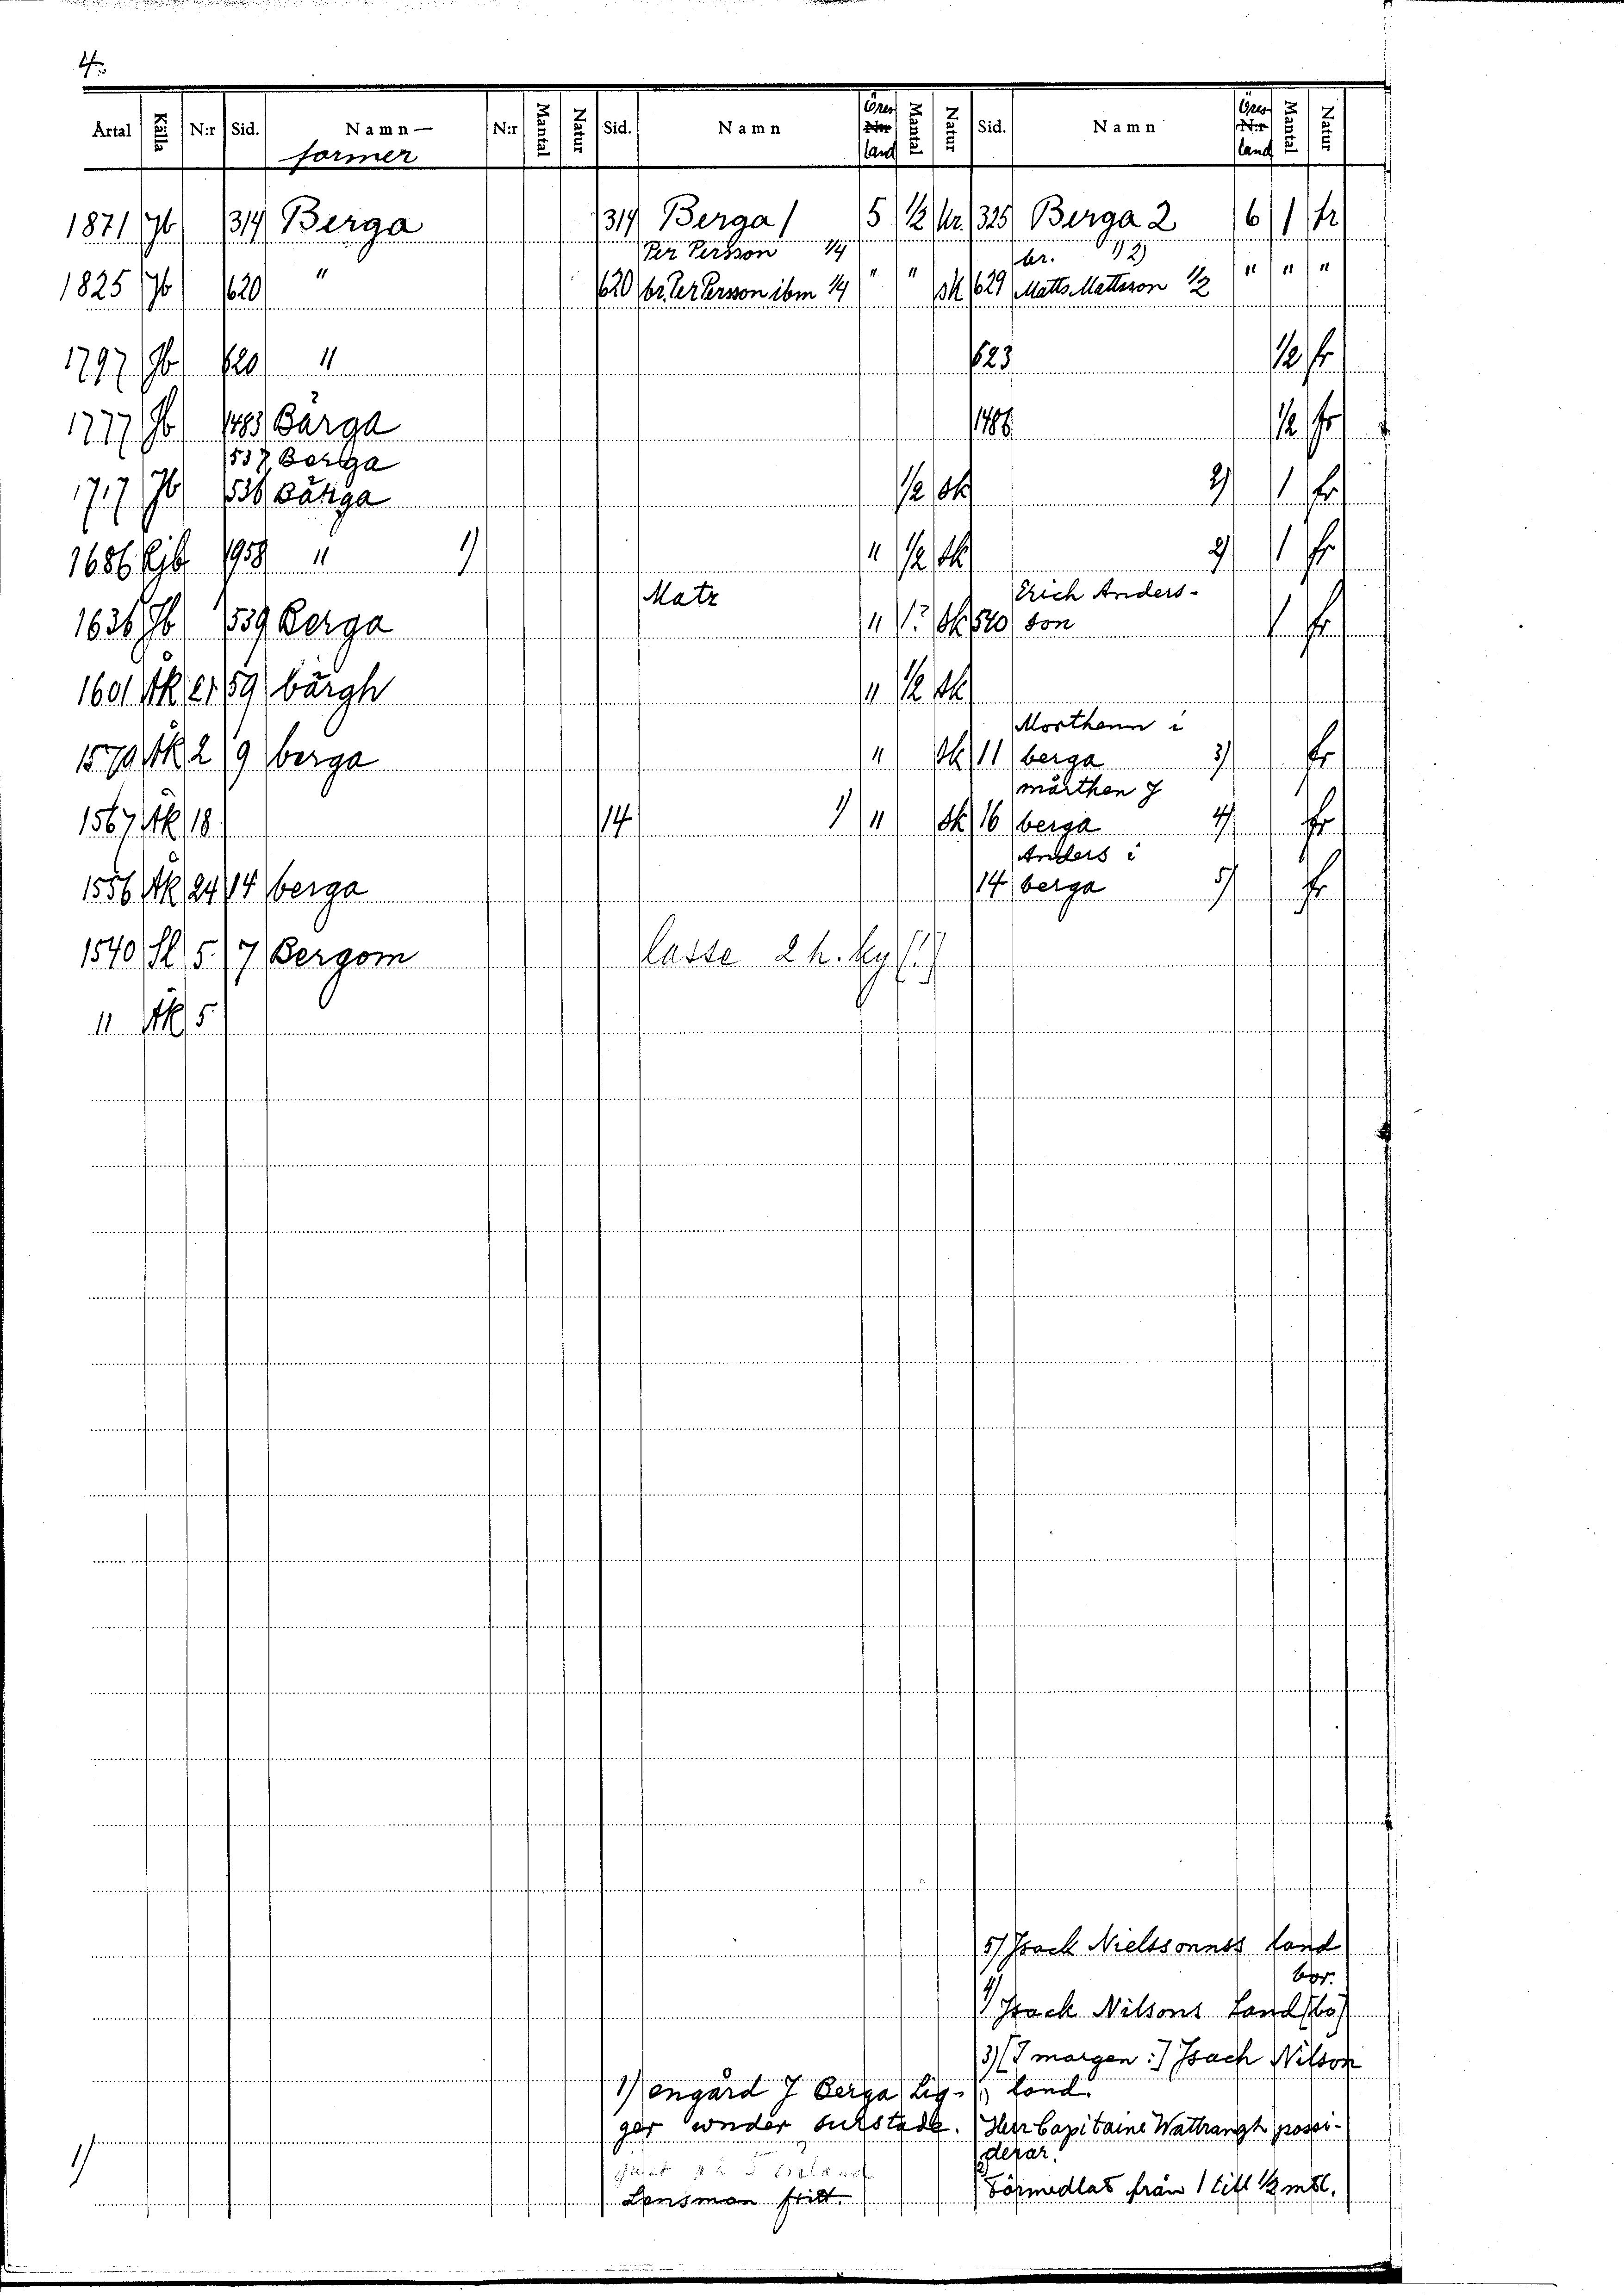 4.
Årtal Källa N:r Sid. Namn— N:r Mantal Natur Sid. Namn Öres N:r Mantal Natur Sid. Namn Öres N:r Mantal Natur
former land land
1871 Jb 314 Berga 314 Berga 1 5 1/2 kr. 325 Berga 2 6 1 fr
Per Persson 1/4 br. 1) 2)
1825 Jb 620 " 620 br. Per Persson ibm 1/4 " " sk 629 Matts Mattsson 1/2 " " "
1797 Jb 620 " 623 1/2 fr
1777 Jb 1483 Bärga 1486 1/2 fr
537 Berga
1717 Jb 536 Bärga 1/2 sk 2) 1 fr
1686 Kjb 1958 " 1) " 1/2 sk 2) 1 fr
Matz Erich Anders-
1636 Jb 539 Berga " 1? sk 540 son 1 fr
1601 ÄK 21 59 bärgh " 1/2 sk
Morthenn i
1579 ÄK 2 9 berga " sk 11 berga 3) fr
mårthen J
1567 ÄK 18 14 1) " sk 16 berga 4) fr
Anders i
1556 ÄK 24 14 berga 14 berga 5) fr
1540 Sl 5. 7 Bergom lasse 2 h. ky [!]
" ÄK 5
5) Jsack Nielssonnss land
bor.
4) Jsack Nilsons Land [bo]
3) [J margen:] Jsach Nilson
1) engård J Berga Lig- land.
ger wnder sulstade. Herr Capitaine Wattrangh possi-
1) derar.
Lensman fritt. 2) Förmedlat från 1 till 1/2 mtl.